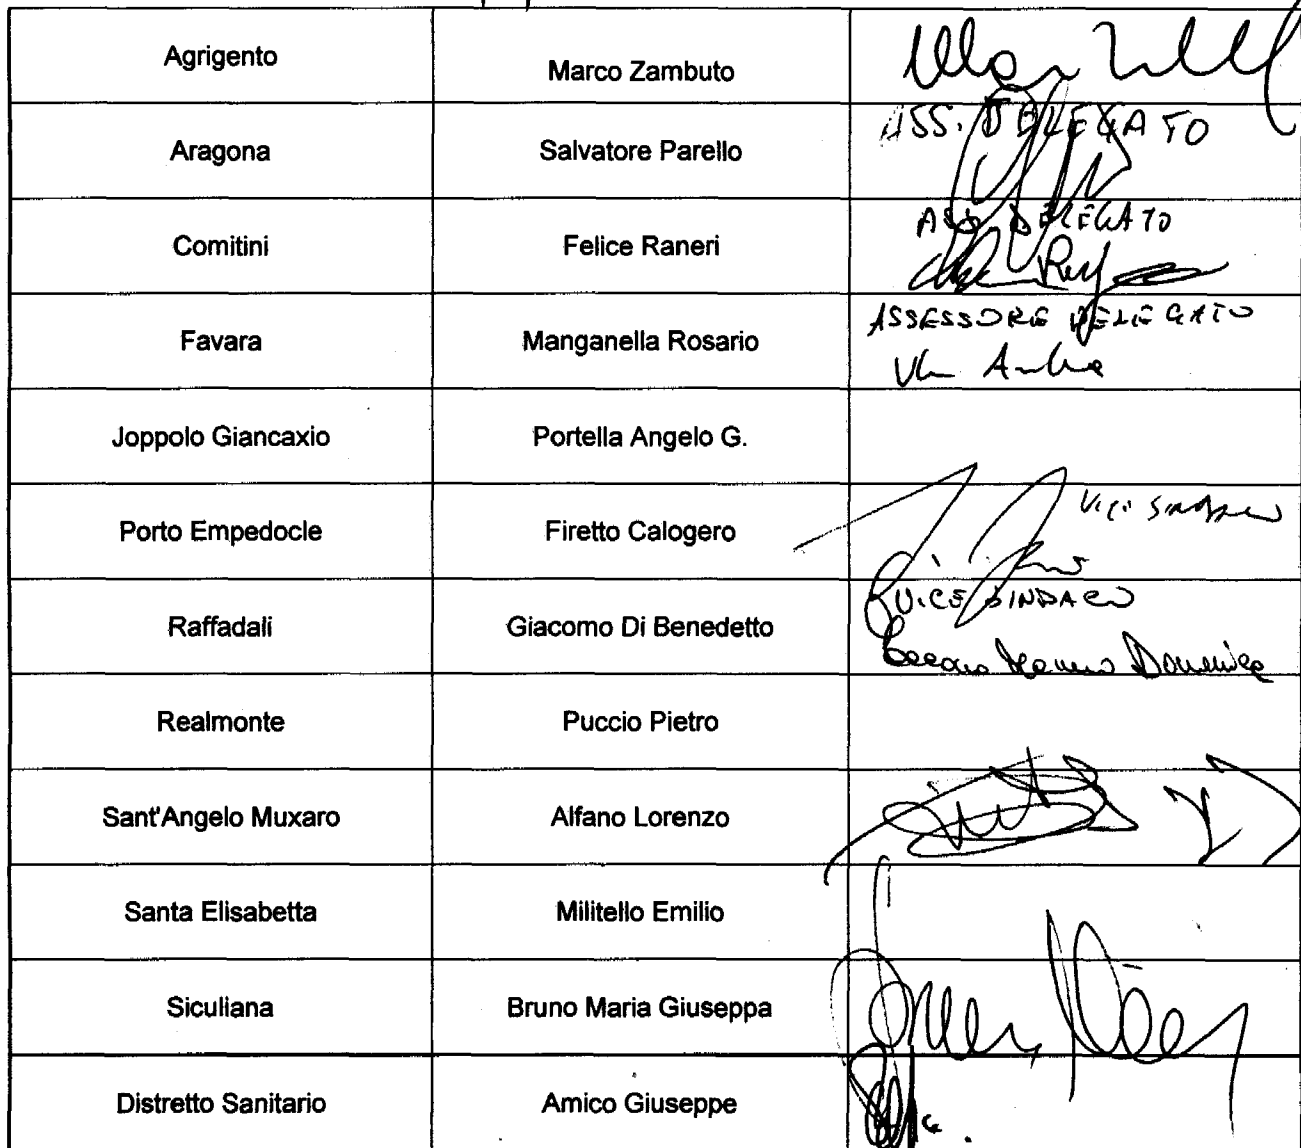 Agrigento Marco Zambuto
Aragona Salvatore Parello ASS. DELEGATO
Comitini Felice Raneri ASS DELEGATO
Favara Manganella Rosario ASSESSORE DELEGATO
Joppolo Giancaxio Portella Angelo G.
Porto Empedocle Firetto Calogero VICE SINDACO
Raffadali Giacomo Di Benedetto VICE SINDACO
Domenica
Realmonte Puccio Pietro
Sant'Angelo Muxaro Alfano Lorenzo
Santa Elisabetta Militello Emilio
Siculiana Bruno Maria Giuseppa
Distretto Sanitario Amico Giuseppe